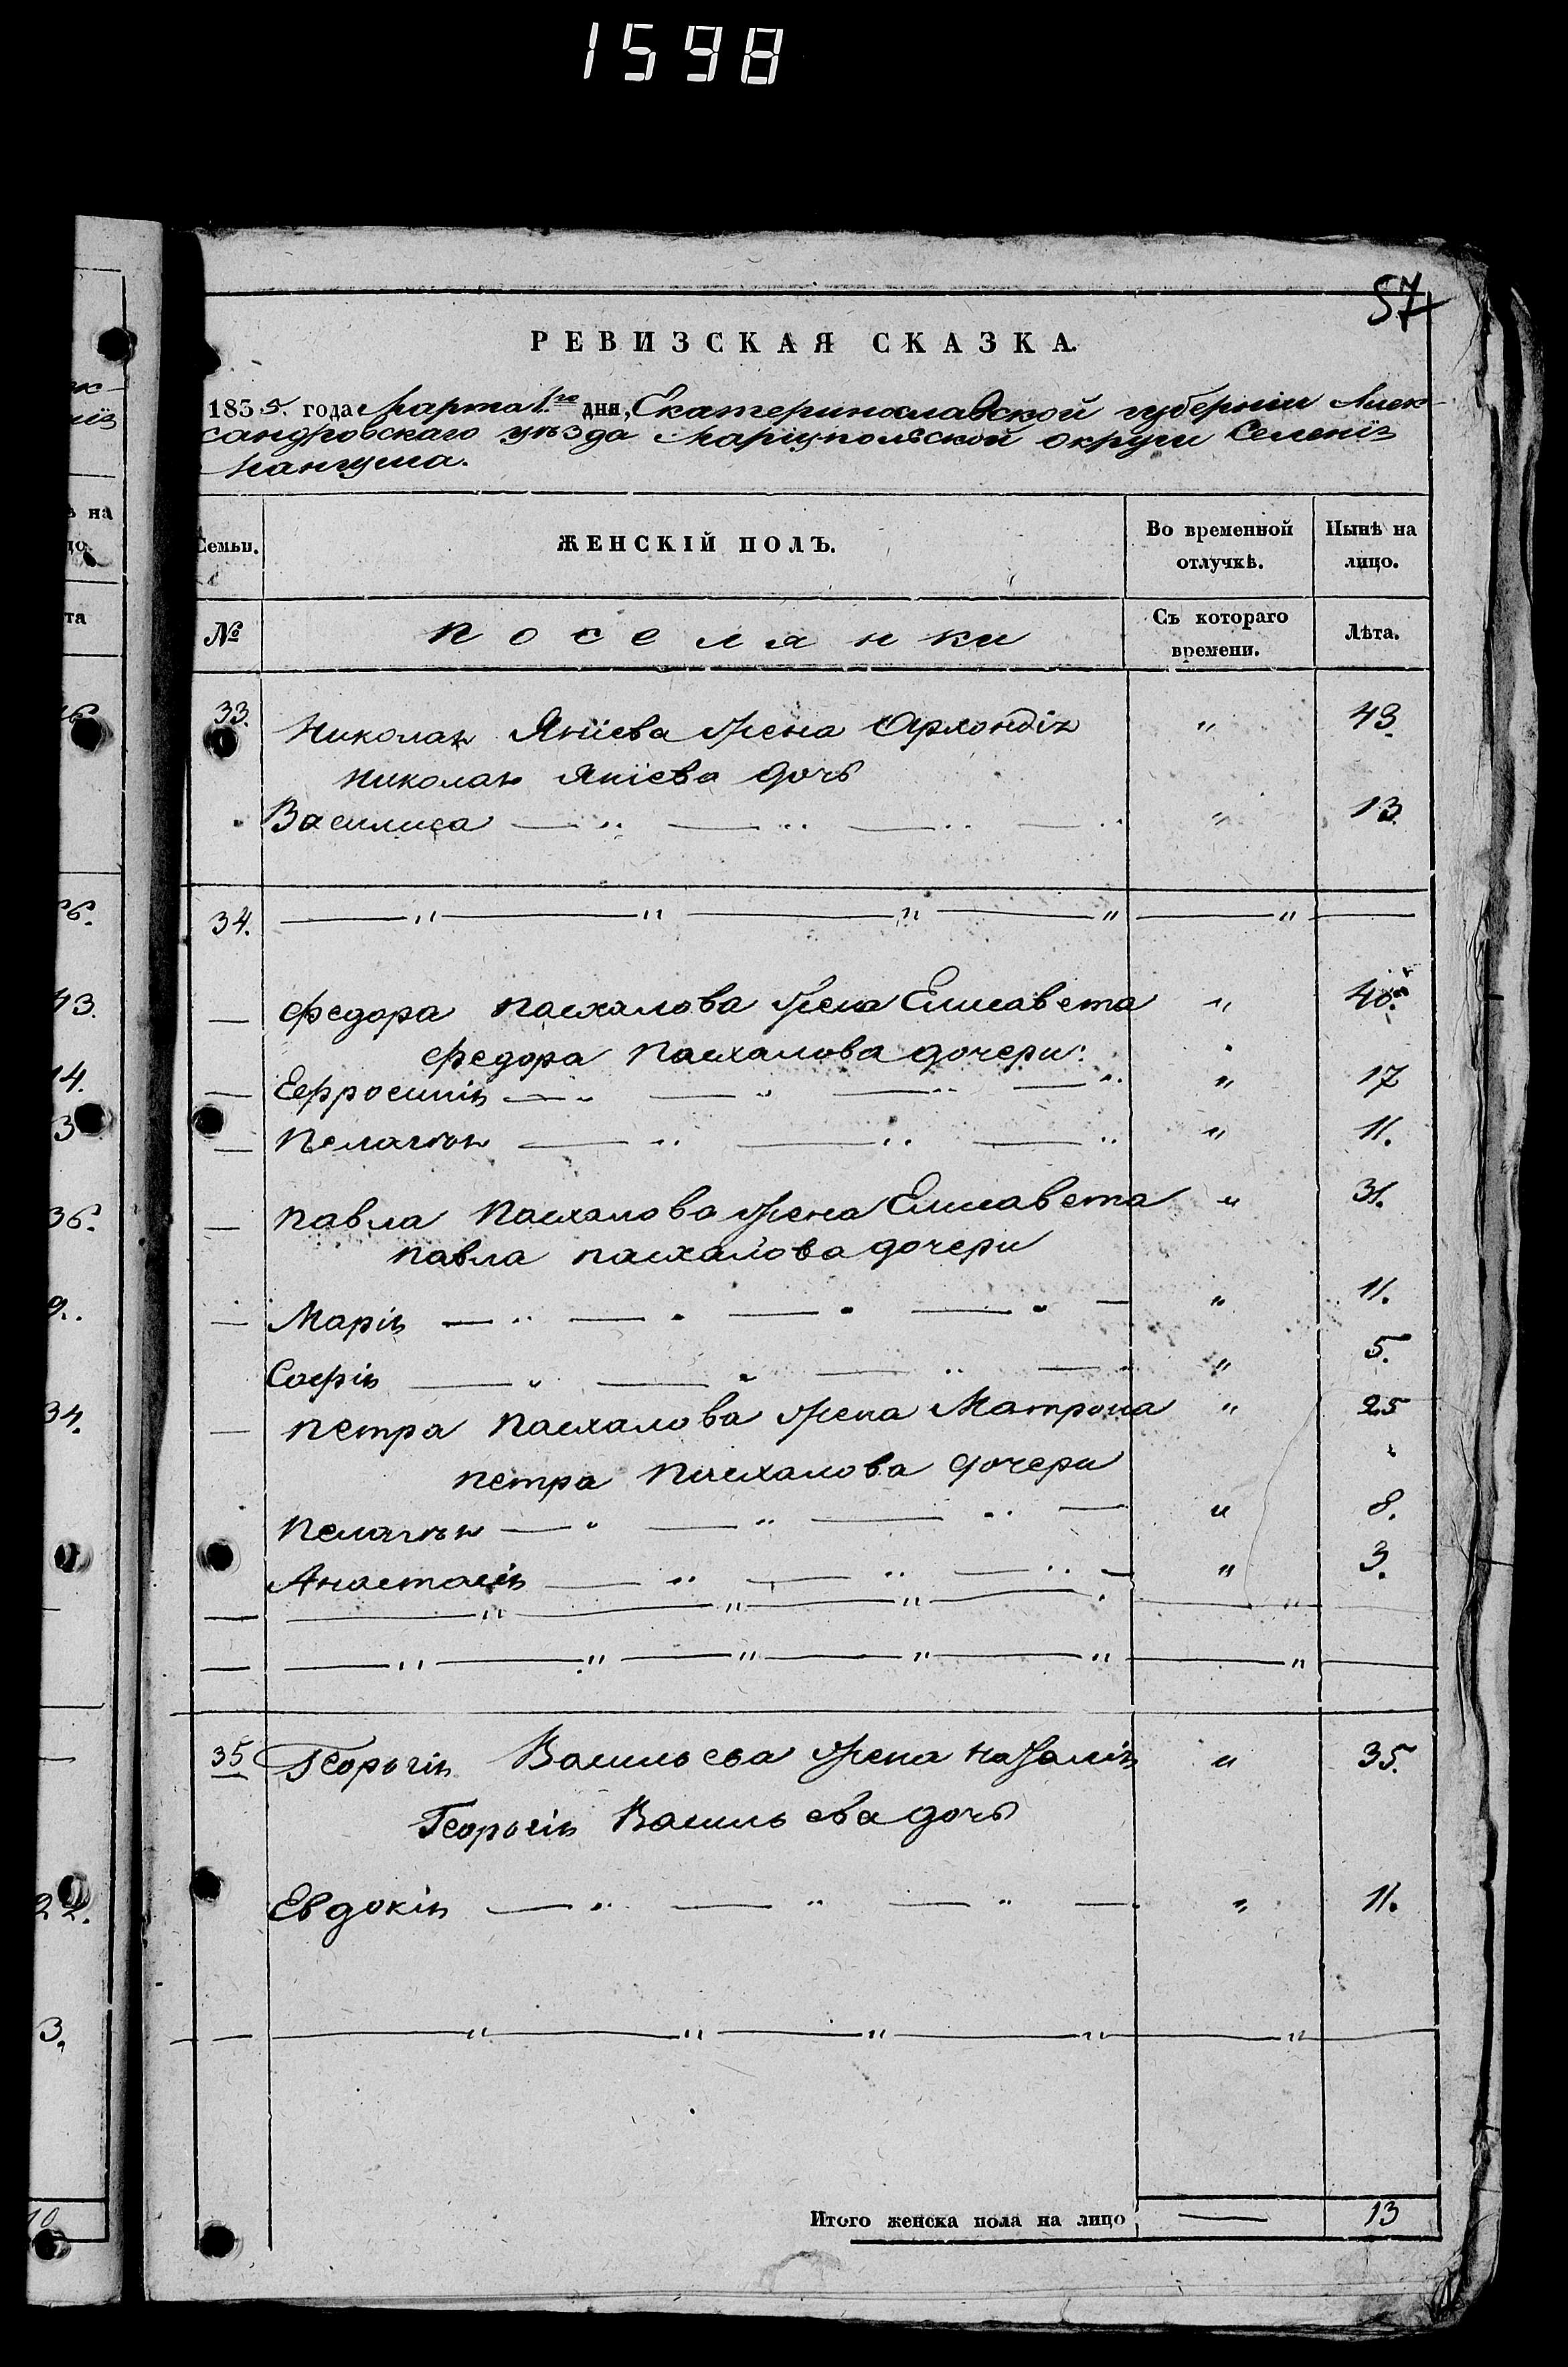 1598
57
РЕВИЗСКАЯ СКАЗКА.
1835. года Марта 1го дня, Екатеринославской губерніи Алек-
сандровскаго уѣзда Маріупольской округи Селенія
Мангуша.
Семьи. ЖЕНСКІЙ ПОЛЪ. Во временной отлучкѣ. Нынѣ на лицо.
№ поселянки Съ котораго времени. Лѣта.
33. Николая Яніева жена Архондія " 43.
Николая Яніева дочь
Василиса — " — " — " — " " 13.
34. — " — " — " — " — " —
— Федора Пасхалова жена Елисавета " 40.
Федора Пасхалова дочери:
— Ефросинія — " — " — " — " " 17
— Пелагія — " — " — " " 11.
— Павла Пасхалова жена Елисавета " 31.
Павла Пасхалова дочери
— Марія — " — " — " — " — " 11.
Софія — " — " — " — " " 5.
— Петра Пасхалова жена Матрона " 25
Петра Пасхалова дочери "
Пелагія — " — " — " — " 8.
Анастасія — " — " — " — " 3.
— — " — " — " — " — "
— — " — " — " — " — " — " —
35 Георгія Васильева жена Наталія " 35.
Георгія Васильева дочь
Евдокія — " — " — " — " 11.
— — " — " — " — " — " —
Итого женска пола на лицо — 13